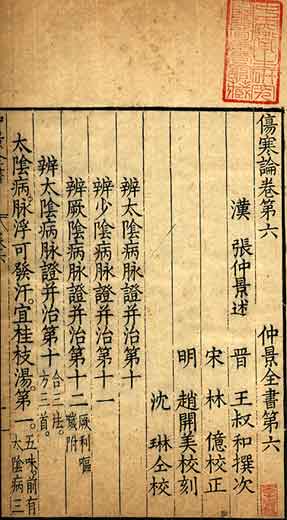 傷寒論卷第六 仲景全書第六
漢 張仲景述
晉 王叔和撰次
宋 林 億校正
明 趙開美校刻
沈 琳仝校
辨太陰病脉證并治第十
辨少陰病脉證并治第十一
辨厥陰病脉證并治第十二 厥利嘔噦附
辨太陰病脉證并治第十 合三法。方三首。
太陰病。脉浮可發汗。宜桂枝湯。第一。五味。前有太陰病三